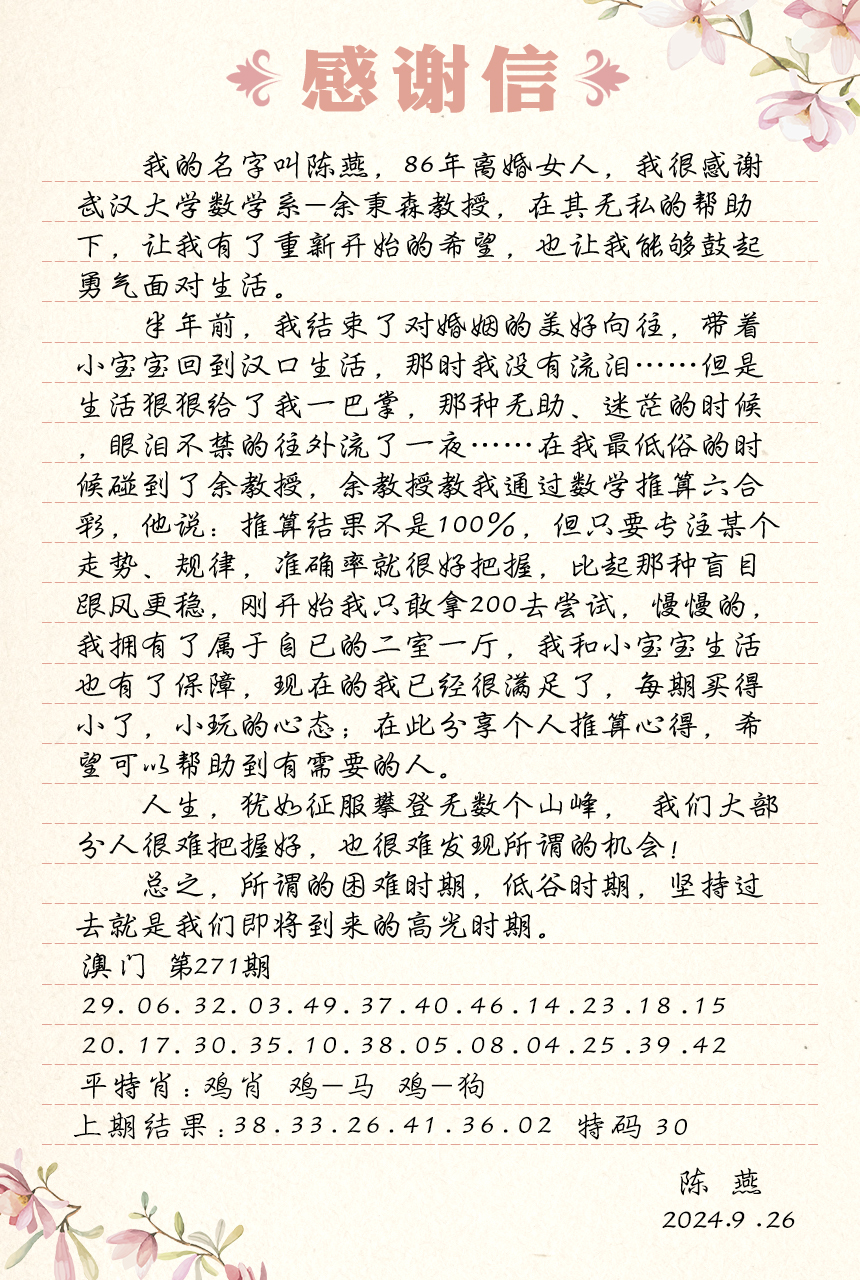 感谢信
我的名字叫陈燕，86年离婚女人，我很感谢
武汉大学数学系-余秉森教授，在其无私的帮助
下，让我有了重新开始的希望，也让我能够鼓起
勇气面对生活。
半年前，我结束了对婚姻的美好向往，带着
小宝宝回到汉口生活，那时我没有流泪……但是
生活狠狠给了我一巴掌，那种无助、迷茫的时候
，眼泪不禁的往外流了一夜……在我最低俗的时
候碰到了余教授，余教授教我通过数学推算六合
彩，他说：推算结果不是100%，但只要专注某个
走势、规律，准确率就很好把握，比起那种盲目
跟风更稳，刚开始我只敢拿200去尝试，慢慢的，
我拥有了属于自已的二室一厅，我和小宝宝生活
也有了保障，现在的我已经很满足了，每期买得
小了，小玩的心态；在此分享个人推算心得，希
望可以帮助到有需要的人。
人生，犹如征服攀登无数个山峰， 我们大部
分人很难把握好，也很难发现所谓的机会！
总之，所谓的困难时期，低谷时期，坚持过
去就是我们即将到来的高光时期。
澳门 第271期
29.06.32.03.49.37.40.46.14.23.18.15
20.17.30.35.10.38.05.08.04.25.39.42
平特肖：鸡肖 鸡-马 鸡-狗
上期结果：38.33.26.41.36.02 特码 30
陈 燕
2024.9.26